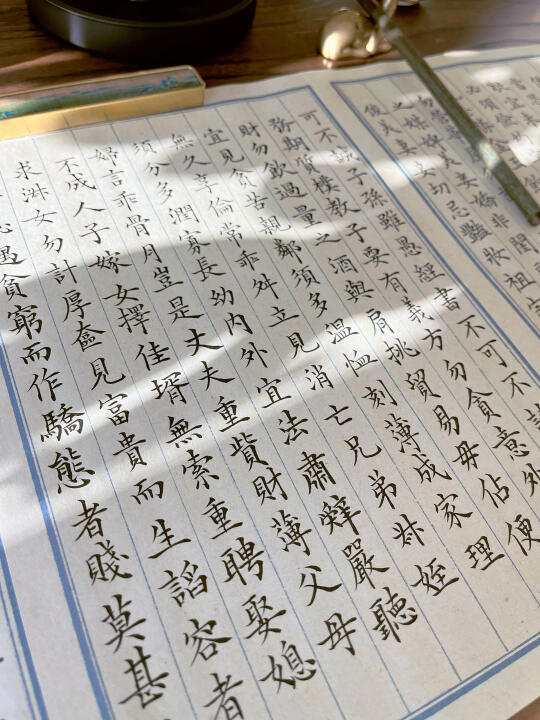 勿營
之媒婢美妾嬌非閨
俊美妻妾切忌艷妝祖宗
可不誠子孫雖愚經書不可不
期質樸教子要有義方勿貪意外
財勿飲過量之酒與肩挑貿易毋佔便
宜見貧苦親鄰須多溫恤刻薄成家理
無久享倫常乖舛立見消亡兄弟叔姪
須分多潤寡長幼內外宜法肅辭嚴聽
婦言乖骨月豈是丈夫重貲財薄父母
不成人子嫁女擇佳壻無索重聘娶媳
求淑女勿計厚奩見富貴而生諂容者
遇貧窮而作驕態者賤莫甚